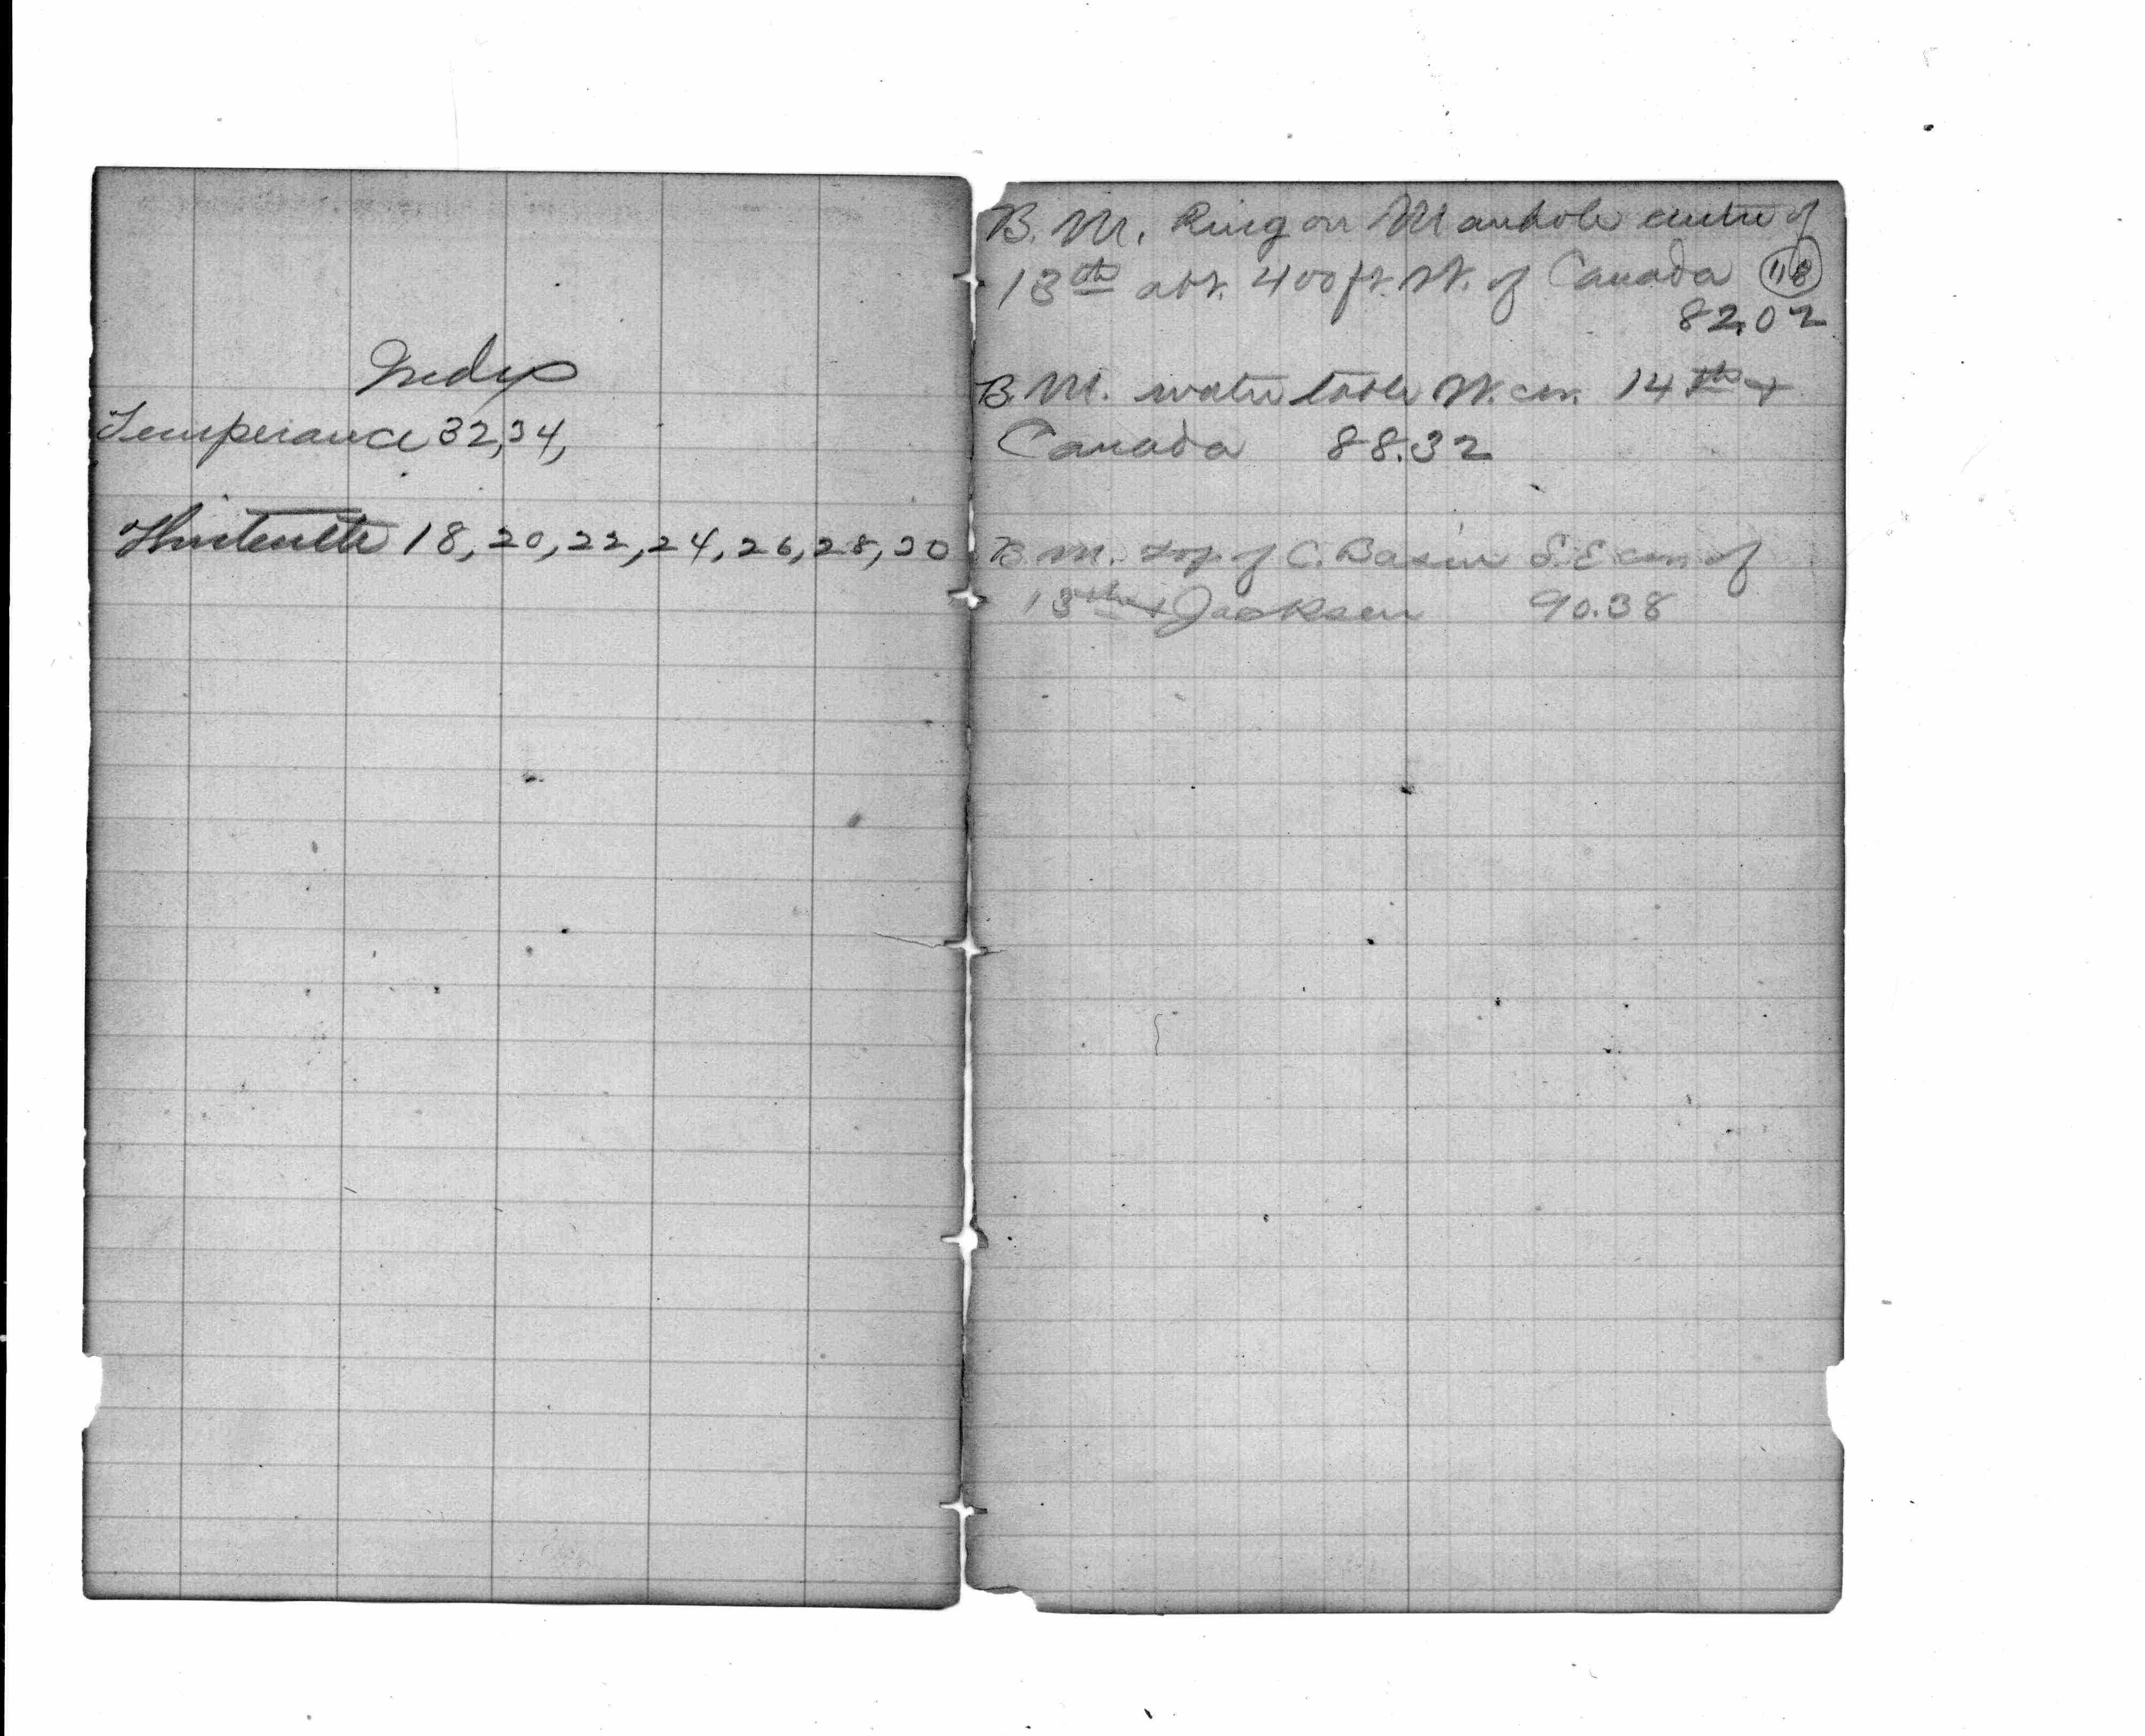 Index
Temperance 32,34,
Thirteenth 18, 20, 22, 24, 26, 28, 30
B. M. Ring on Manhole centre of
13th abt. 400 ft. W. of Canada 118
82.02
B. M. water table W. cor. 14th +
Canada 88.32
B. M. top of C. Basin S.E cor. of
13th + Jackson 90.38